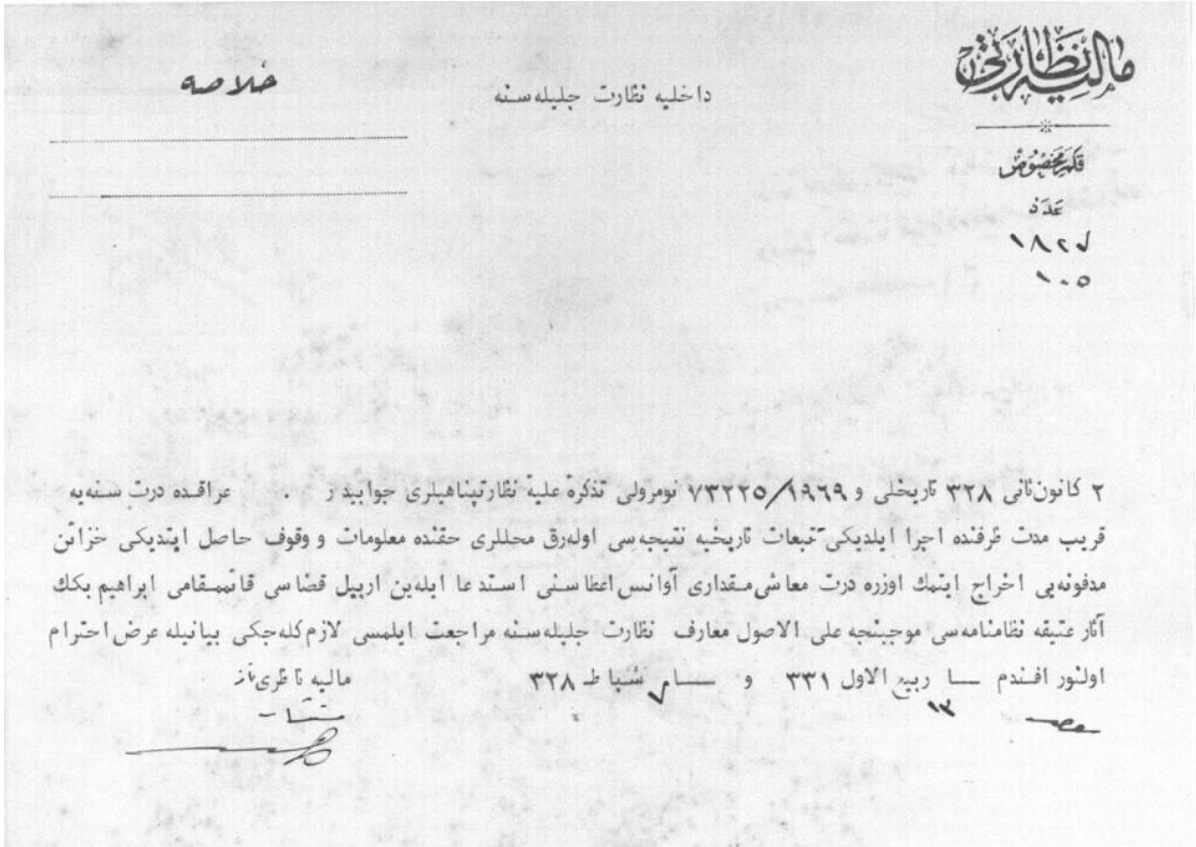 مالیه نظارتی
قلم مخصوص
عدد
١٨٢
١٠٥
خلاصه
داخلیه نظارت جلیله‌سنه
٢ کانون‌ثانی ٣٢٨ تاریخلی و ٧٣٢٢٥/١٩٦٩ نومرولی تذکره علیه نظارتپناهیلری جوابیدر . عراقده درت سنه‌یه
قریب مدت ظرفنده اجرا ایلدیکی تتبعات تاریخیه نتیجه‌سی اوله‌رق محللری حقنده معلومات و وقوف حاصل ایتدیکی خزائن
مدفونه‌یی اخراج ایتمك اوزره درت معاش مقداری آوانس اعطاسنی استدعا ایله‌ین اربیل قضاسی قائممقامی ابراهیم بكك
آثار عتیقه نظامنامه‌سی موجبنجه علی الاصول معارف نظارت جلیله‌سنه مراجعت ایلمسی لازم‌کله‌جکی بیانیله عرض احترام
اولنور افندم ١٣ ربیع الاول ٣٣١ و ٧ شباط ٣٢٨
مالیه ناظری